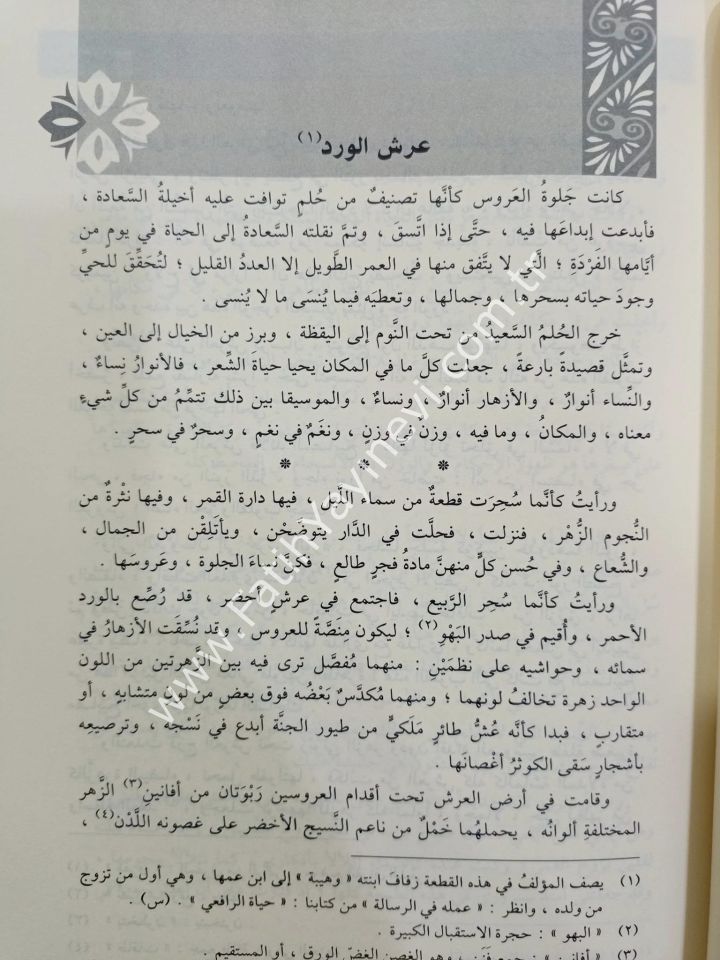 عرش الورد(١)
كانت جَلوةُ العَروس كأنَّها تصنيفٌ من حُلمٍ توافت عليه أخيلةُ السَّعادة ،
فأبدعت إبداعَها فيه ، حتَّى إذا اتَّسقَ ، وتمَّ نقلته السَّعادةُ إلى الحياة في يومٍ من
أيَّامها الفَرْدَةِ ؛ الَّتي لا يتَّفق منها في العمر الطَّويل إلا العددُ القليل ؛ لتُحَقِّقَ للحيِّ
وجودَ حياته بسحرها ، وجمالها ، وتعطيَه فيما يُنسَى ما لا يُنسى .
خرج الحُلمُ السَّعيدُ من تحت النَّوم إلى اليقظة ، وبرز من الخيال إلى العين ،
وتمثَّل قصيدةً بارعةً ، جعلت كلَّ ما في المكان يحيا حياةَ الشِّعر ، فالأنوارُ نِساءٌ ،
والنِّساء أنوارٌ ، والأزهار أنوارٌ ، ونساءٌ ، والموسيقا بين ذلك تتمِّمُ من كلِّ شيءٍ
معناه ، والمكانُ ، وما فيه ، وزنٌ في وزنٍ ، ونغَمٌ في نغمٍ ، وسحرٌ في سحرٍ .
* * *
ورأيتُ كأنَّما سُحِرَت قطعةٌ من سماء اللَّيل ، فيها دارة القمر ، وفيها نثْرةٌ من
النُّجوم الزُّهْر ، فنزلت ، فحلَّت في الدَّار يتوضَّحْن ، ويأتَلِقْن من الجمال ،
والشُّعاع ، وفي حُسن كلٍّ منهنَّ مادةُ فجرٍ طالعٍ ، فكنَّ نساءَ الجلوة ، وعَروسَها .
ورأيتُ كأنَّما سُحِر الرَّبيع ، فاجتمع في عرشٍ أخضر ، قد رُصِّع بالورد
الأحمر ، وأُقيم في صدر البَهْوِ(٢) ؛ ليكون مِنَصَّةً للعروس ، وقد نُسِّقَت الأزهارُ في
سمائه ، وحواشيه على نظمَيْنِ : منهما مُفصَّل ترى فيه بين الزَّهرتين من اللون
الواحد زهرة تخالفُ لونهما ؛ ومنهما مُكدَّسٌ بَعْضُه فوق بعضٍ من لونٍ متشابهٍ ، أو
متقاربٍ ، فبدا كأنَّه عُشُّ طائرٍ مَلَكيٍّ من طيور الجنَّة أبدع في نَسْجه ، وترصيعِه
بأشجارٍ سَقى الكوثرُ أغْصانَها .
وقامت في أرض العرش تحت أقدام العروسين رَبْوَتان من أفانينِ(٣) الزَّهر
المختلفةِ ألوانُه ، يحملهُما خَمْلٌ من ناعم النَّسيج الأخضر على غصونه اللَّدْن(٤) ،
(١) يصف المؤلفُ في هذه القطعة زفافَ ابنته « وهيبة » إلى ابن عمها ، وهي أول من تزوج
من ولده ، وانظر : « عمله في الرسالة » من كتابنا : « حياة الرافعي » . (س) .
(٢) « البهو » : حجرة الاستقبال الكبيرة .
(٣) « أفانين » : جمع فَنَن ، وهو الغصن الغضّ الورق ، أو المستقيم .
www.FatihYayinevi.com.tr